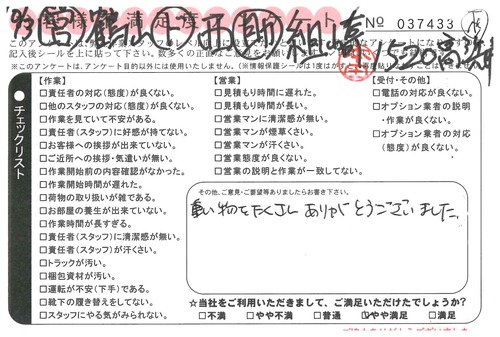 No 037433
このアンケートは、
※このアンケートは、アンケート目的以外には使用いたしません。(※情報保護シールは1度はがす
チェックリスト
【作業】
□責任者の対応(態度)が良くない。
□他のスタッフの対応(態度)が良くない。
□作業を見ていて不安がある。
□責任者(スタッフ)に好感が持てない。
□お客様への挨拶が出来ていない。
□ご近所への挨拶・気遣いが無い。
□作業開始前の内容確認がなかった。
□作業開始時間が遅れた。
□荷物の取り扱いが雑である。
□お部屋の養生が出来ていない。
□作業時間が長すぎる。
□責任者(スタッフ)に清潔感が無い。
□責任者(スタッフ)が汗くさい。
□トラックが汚い。
□梱包資材が汚い。
□運転が不安(下手)である。
□靴下の履き替えをしてない。
□スタッフにやる気がみられない。
【営業】
□見積もり時間に遅れた。
□見積もり時間が長い。
□営業マンに清潔感が無い。
□営業マンが煙草くさい。
□営業マンが汗くさい。
□営業態度が良くない。
□営業の説明と作業が一致してない。
【受付・その他】
□電話の対応が良くない。
□オプション業者の説明
・作業が良くない。
□オプション業者の対応
(態度)が良くない。
その他、ご意見・ご要望等ありましたらお書き下さい。
重い物をたくさん ありがとうございました。
☆当社をご利用いただきまして、ご満足いただけたでしょうか?
□不満 □やや不満 □普通 □やや満足 □満足